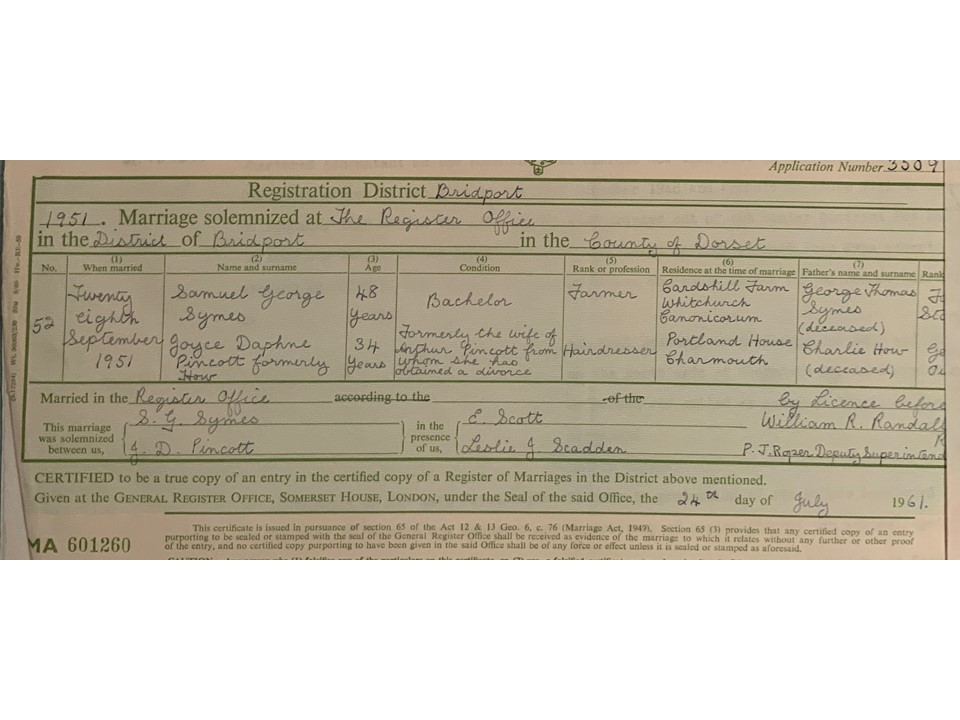 Application Number 3509
Registration District Bridport
1951. Marriage solemnized at The Register Office
in the District of Bridport in the County of Dorset
(1) (2) (3) (4) (5) (6) (7)
No. When married Name and surname Age Condition Rank or profession Residence at the time of marriage Father's name and surname Rank
52
Twenty eighth September 1951
Samuel George Symes
48 Years
Bachelor
Farmer
Cardshill Farm Whitchurch Canonicorum
George Thomas Symes (deceased)
Joyce Daphne Pincott formerly How
34 Years
Formerly the wife of Arthur Pincott from whom she has obtained a divorce
Hairdresser
Portland House Charmouth
Charlie How (deceased)
Married in the Register Office according to the of the by Licence before
This marriage was solemnized between us,
S. G. Symes
J. D. Pincott
in the presence of us,
E. Scott
Leslie J. Scadden
William R. Randall
P. J. Roper Deputy Superintend
CERTIFIED to be a true copy of an entry in the certified copy of a Register of Marriages in the District above mentioned.
Given at the GENERAL REGISTER OFFICE, SOMERSET HOUSE, LONDON, under the Seal of the said Office, the 24th day of July 1961.
This certificate is issued in pursuance of section 65 of the Act 12 & 13 Geo. 6, c. 76 (Marriage Act, 1949). Section 65 (3) provides that any certified copy of an entry
purporting to be sealed or stamped with the seal of the General Register Office shall be received as evidence of the marriage to which it relates without any further or other proof
of the entry, and no certified copy purporting to have been given in the said Office shall be of any force or effect unless it is sealed or stamped as aforesaid.
MA 601260